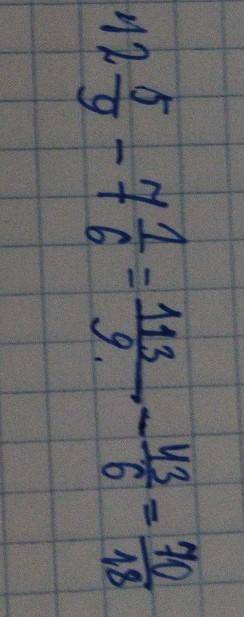 12 5/9 - 7 1/6 = 113/9 - 43/6 = 70/18